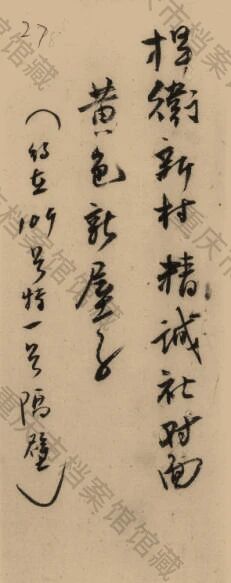 捍衛新村精誠社对面
黄色新屋子
（特在109号特一号隔壁）
27
重庆市档案馆馆藏